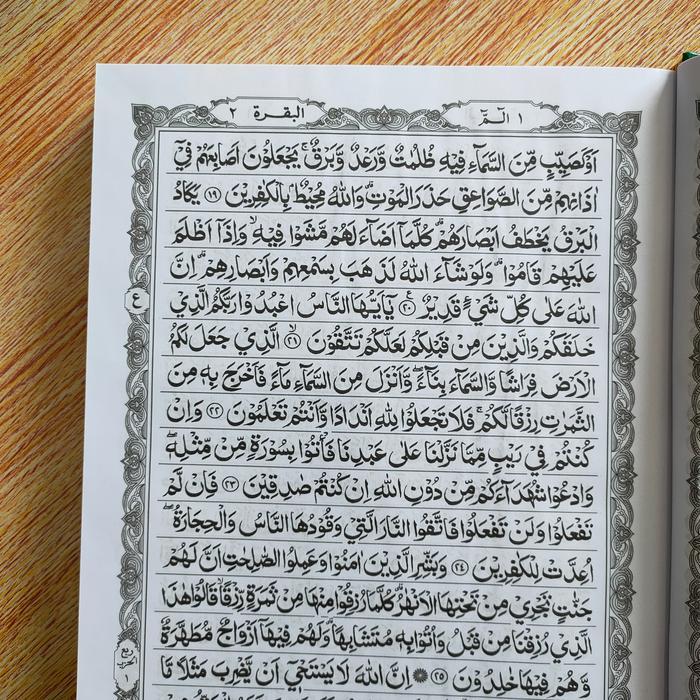 ١ الٓمّٓ
البقرة ٢
اَوْ كَصَيِّبٍ مِّنَ السَّمَآءِ فِيْهِ ظُلُمٰتٌ وَّرَعْدٌ وَّبَرْقٌ ۚ يَجْعَلُوْنَ اَصَابِعَهُمْ فِيْٓ
اٰذَانِهِمْ مِّنَ الصَّوَاعِقِ حَذَرَ الْمَوْتِ ؕ وَاللّٰهُ مُحِيْطٌۢ بِالْكٰفِرِيْنَ ﴿١٩﴾ يَكَادُ
الْبَرْقُ يَخْطَفُ اَبْصَارَهُمْ ؕ كُلَّمَآ اَضَآءَ لَهُمْ مَّشَوْا فِيْهِ ۙ وَاِذَآ اَظْلَمَ
عَلَيْهِمْ قَامُوْا ؕ وَلَوْ شَآءَ اللّٰهُ لَذَهَبَ بِسَمْعِهِمْ وَاَبْصَارِهِمْ ؕ اِنَّ
اللّٰهَ عَلٰى كُلِّ شَيْءٍ قَدِيْرٌ ﴿٢٠﴾ يٰٓاَيُّهَا النَّاسُ اعْبُدُوْا رَبَّكُمُ الَّذِيْ
خَلَقَكُمْ وَالَّذِيْنَ مِنْ قَبْلِكُمْ لَعَلَّكُمْ تَتَّقُوْنَ ﴿٢١﴾ الَّذِيْ جَعَلَ لَكُمُ
الْاَرْضَ فِرَاشًا وَّالسَّمَآءَ بِنَآءً ۪ وَّاَنْزَلَ مِنَ السَّمَآءِ مَآءً فَاَخْرَجَ بِهٖ مِنَ
الثَّمَرٰتِ رِزْقًا لَّكُمْ ۚ فَلَا تَجْعَلُوْا لِلّٰهِ اَنْدَادًا وَّاَنْتُمْ تَعْلَمُوْنَ ﴿٢٢﴾ وَاِنْ
كُنْتُمْ فِيْ رَيْبٍ مِّمَّا نَزَّلْنَا عَلٰى عَبْدِنَا فَاْتُوْا بِسُوْرَةٍ مِّنْ مِّثْلِهٖ ۪
وَادْعُوْا شُهَدَآءَكُمْ مِّنْ دُوْنِ اللّٰهِ اِنْ كُنْتُمْ صٰدِقِيْنَ ﴿٢٣﴾ فَاِنْ لَّمْ
تَفْعَلُوْا وَلَنْ تَفْعَلُوْا فَاتَّقُوا النَّارَ الَّتِيْ وَقُوْدُهَا النَّاسُ وَالْحِجَارَةُ ۖ
اُعِدَّتْ لِلْكٰفِرِيْنَ ﴿٢٤﴾ وَبَشِّرِ الَّذِيْنَ اٰمَنُوْا وَعَمِلُوا الصّٰلِحٰتِ اَنَّ لَهُمْ
جَنّٰتٍ تَجْرِيْ مِنْ تَحْتِهَا الْاَنْهٰرُ ؕ كُلَّمَا رُزِقُوْا مِنْهَا مِنْ ثَمَرَةٍ رِّزْقًا ۙ قَالُوْا هٰذَا
الَّذِيْ رُزِقْنَا مِنْ قَبْلُ ۙ وَاُتُوْا بِهٖ مُتَشَابِهًا ؕ وَلَهُمْ فِيْهَآ اَزْوَاجٌ مُّطَهَّرَةٌ ۙ
وَّهُمْ فِيْهَا خٰلِدُوْنَ ﴿٢٥﴾ ۞ اِنَّ اللّٰهَ لَا يَسْتَحْيٖٓ اَنْ يَّضْرِبَ مَثَلًا مَّا
ع
ربع
الحزب
١